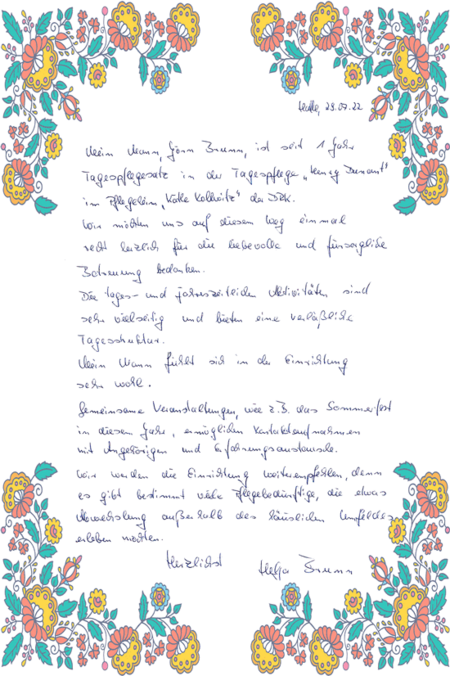 Halle, 29.07.22
Mein Mann, Jörn Brumm, ist seit 1 Jahr
Tagespflegesatz in der Tagespflege „Henry Dunant"
im Pflegeheim „Käthe Kollwitz" der DRK.
Wir möchten uns auf diesem Weg einmal
recht herzlich für die liebevolle und fürsorgliche
Betreuung bedanken.
Die tages- und jahreszeitlichen Aktivitäten sind
sehr vielseitig und bieten eine verläßliche
Tagesstruktur.
Mein Mann fühlt sich in der Einrichtung
sehr wohl.
Gemeinsame Veranstaltungen, wie z.B. das Sommerfest
in diesem Jahr, ermöglichen Kontaktaufnahmen
mit Angehörigen und Erfahrungsaustausche.
Wir werden die Einrichtung weiterempfehlen, denn
es gibt bestimmt viele Pflegebedürftige, die etwas
Abwechslung außerhalb des häuslichen Umfeldes
erleben möchten.
Herzlichst Helga Brumm